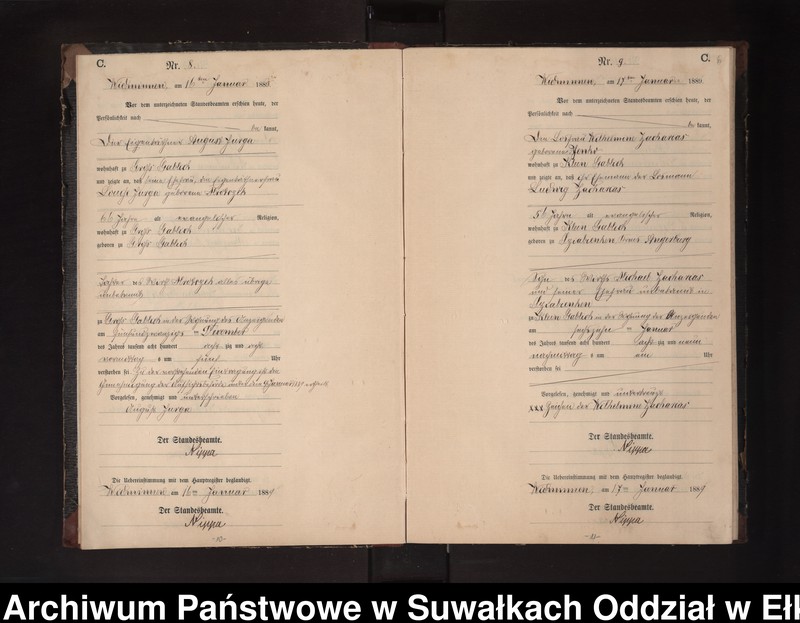 C.
Nr. 8.
Widminnen am 16ten Januar 1889
Vor dem unterzeichneten Standesbeamten erschien heute, der
Persönlichkeit nach
be kannt,
Der Eigenkäthner August Jurga
wohnhaft zu Groß Gablick
und zeigte an, daß seine Ehefrau, die
Louise Jurga geborene
66 Jahre alt evangelischer Religion,
wohnhaft zu Groß Gablick
geboren zu Groß Gablick
Tochter des alles übrige
unbekannt
zu Groß Gablick in der Wohnung des Anzeigenden
am Dezember
des Jahres tausend acht hundert acht zig und acht
vormittag s um fünf Uhr
verstorben sei.
Vorgelesen, genehmigt und unterschrieben
August Jurga
Der Standesbeamte.
Nippa
Die Uebereinstimmung mit dem Hauptregister beglaubigt.
Widminnen am 16ten Januar 1889
Der Standesbeamte.
Nippa
-10-
C.
Nr. 9.
Widminnen, am 17ten Januar 1889.
Vor dem unterzeichneten Standesbeamten erschien heute, der
Persönlichkeit nach
be kannt,
Die Losfrau Wilhelmine Zacharias
geborene
wohnhaft zu Klein Gablick
und zeigte an, daß ihr Ehemann der Losmann
Ludwig Zacharias
Jahre alt evangelischer Religion,
wohnhaft zu Klein Gablick
geboren zu Kreis Angerburg
Sohn des Michael Zacharias
und seiner Ehefrau unbekannt in
zu Klein Gablick in der Wohnung der Anzeigenden
am sechszehn ten Januar
des Jahres tausend acht hundert acht zig und neun
nachmittag s um ein Uhr
verstorben sei
Vorgelesen, genehmigt und unterkreuzt
xxx Zeichen der Wilhelmine Zacharias
Der Standesbeamte.
Nippa
Die Uebereinstimmung mit dem Hauptregister beglaubigt.
Widminnen, am 17ten Januar 1889
Der Standesbeamte.
Nippa
-11-
Archiwum Państwowe w Suwałkach Oddział w Ełk